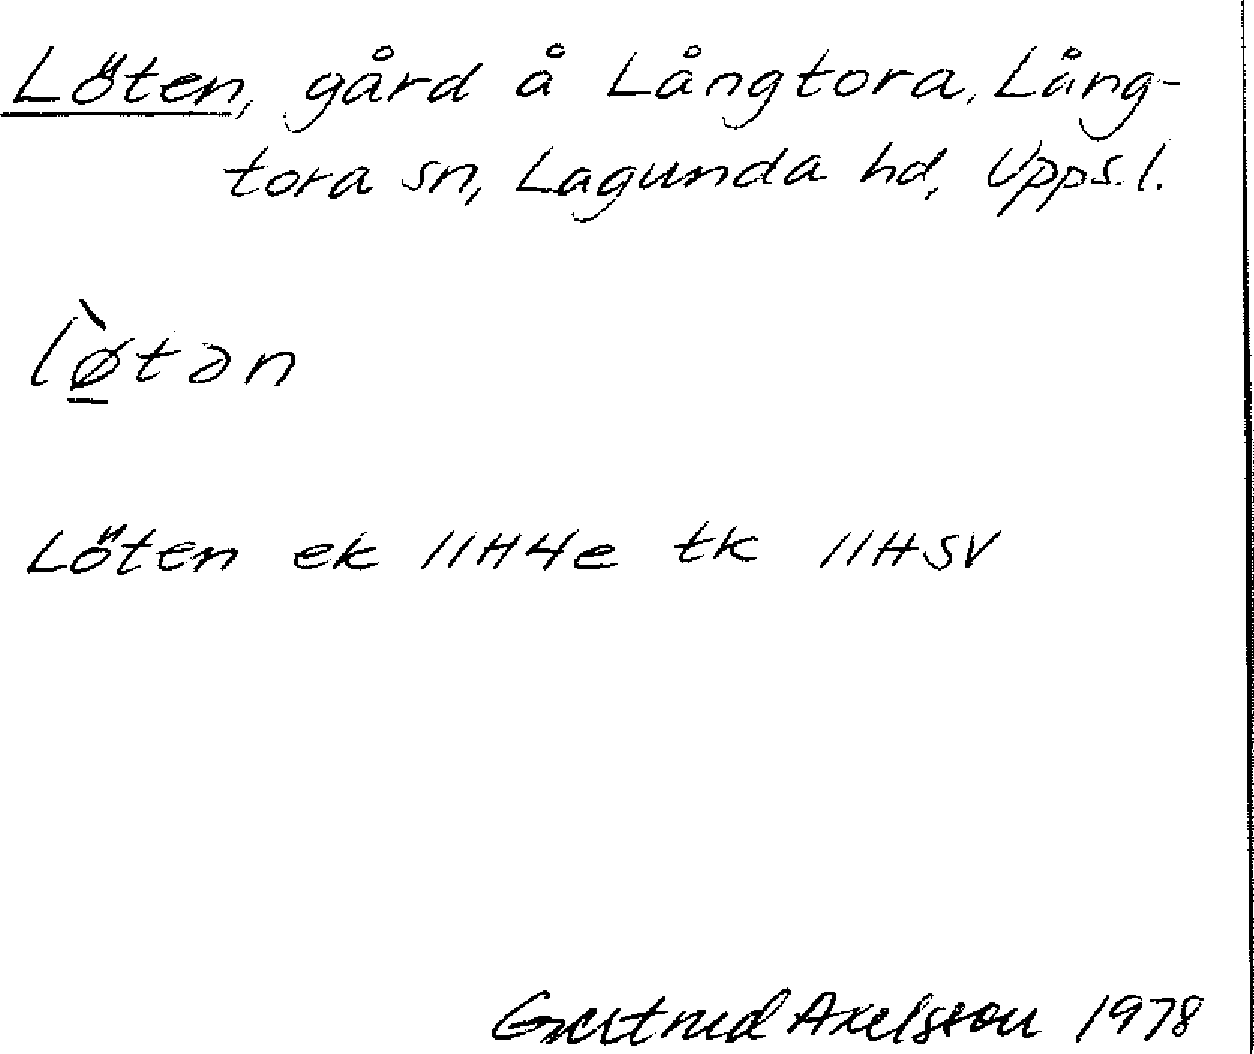 Löten, gård å Långtora, Lång-
tora sn, Lagunda hd, Upps.l.
lø̱̀tən
Löten ek 11H4e tk 11HSV
Gertrud Axelsson 1978